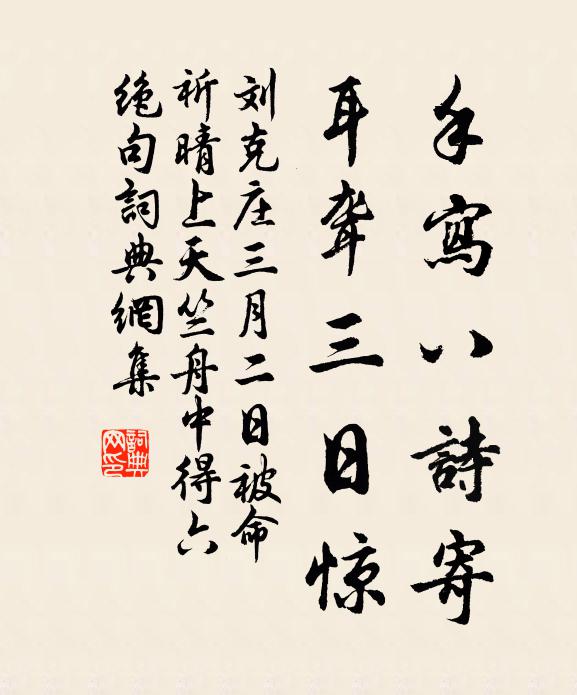 手寫八詩寄
耳聾三日惊
刘克庄三月二日被命
祈晴上天竺舟中得六
绝句詞典網集
詞典
网印